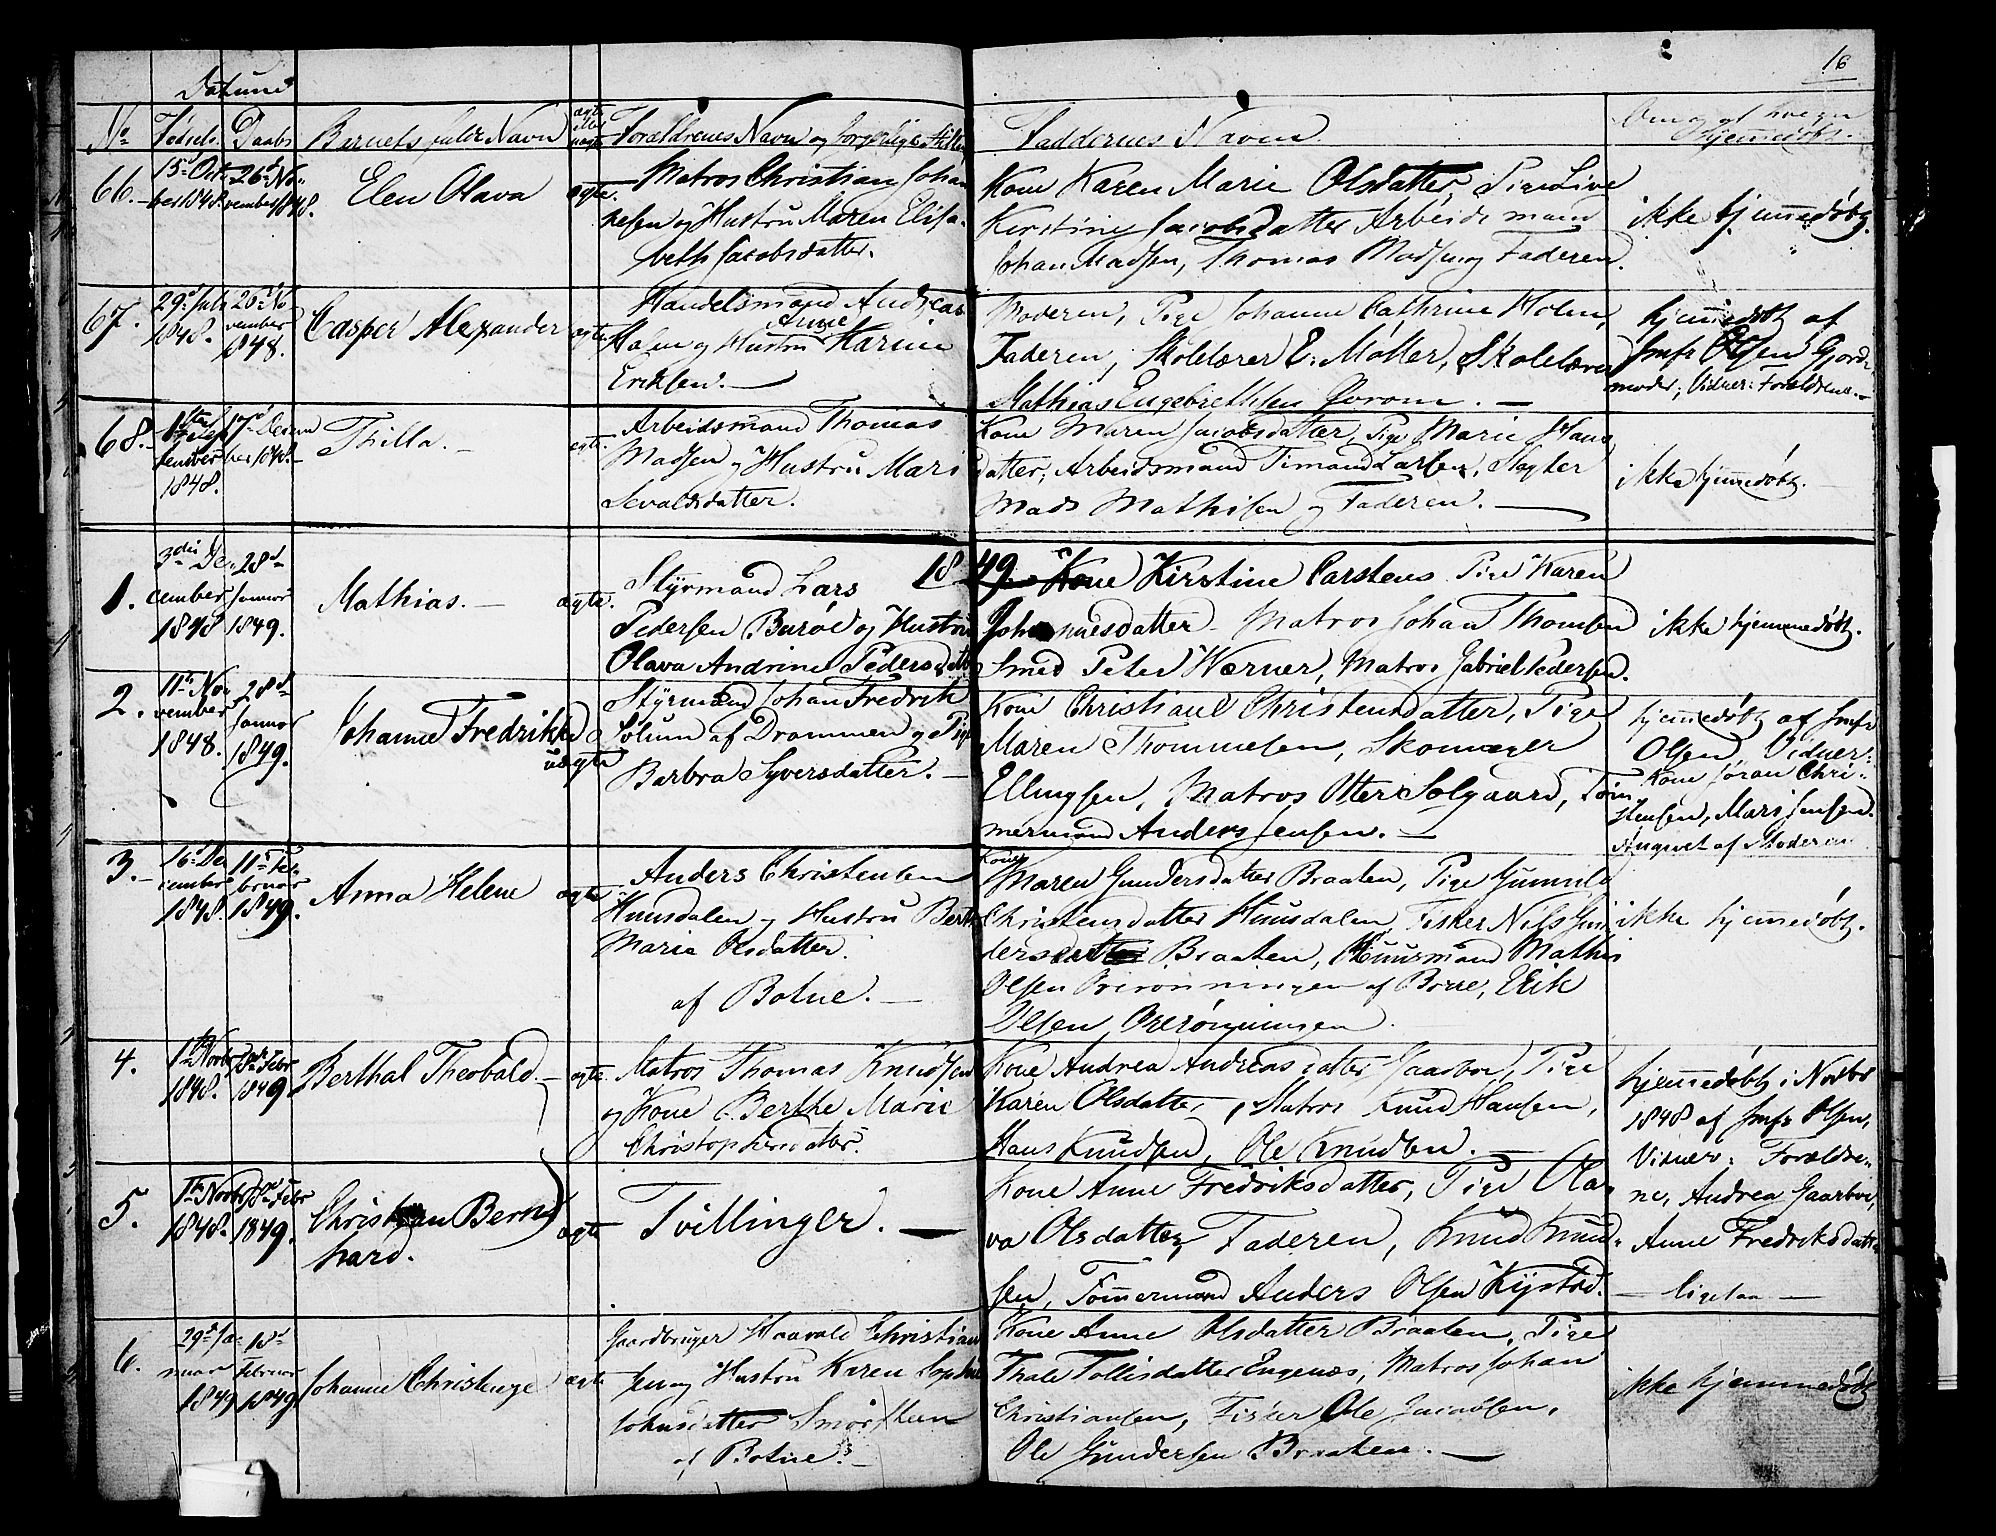 16
Datum
No Fødsels Daabs Barnets fulde Navn ægte eller uægte Forældrenes Navn og borgerlige Stilling Faddernes Navn hjemmedøbt.
66. 15de October 1848. 26de November 1848. Elen Olava ægte. Matros Christian Johan
nesen og Hustru Maren Elisa-
beth Jacobsdatter.
Kone Karen Marie Olsdatter, Pige Live
Kirstine Jacobsdatter Arbeidsmand
Johan Madsen, Thomas Madsen og Faderen.
ikke hjemmedøbt.
67. 29de Juli 1848. 26de November 1848. Casper Alexander ægte Handelsmand Andreas
Holm og Hustru Anne Karine
Eriksen.
Moderen, Pige Johanne Cathrine Holm,
Faderen, Skolelærer E. Møller, Skolelærer
Mathias Engebrethsen
hjemmedøbt af
Jmfr Olsen Gjord-
moder; Vidner: Forældrene.
68. September 1848. 17de December 1848. Thilla. ægte. Arbeidsmand Thomas
Madsen og Hustru Mari
Sevaldsdatter.
Kone Maren Jacobsdatter, Pige Marie Hans
datter, Arbeidsmand Simand Larsen, Slagter
Mads Mathisen og Faderen.
ikke hjemmedøbt.
1849.
1. 3die December 1848 28de Januar 1849. Mathias. ægte. Styrmand Lars
Pedersen Burøe og Hustru
Olava Andrine Pedersdatter
Kone Kirstine Carstens Pige Karen
Johannesdatter Matros Johan Thomsen
Smed Peter Werner, Matros Gabriel Pedersen.
ikke hjemmedøbt.
2. 11te November 1848. 28de Januar 1849. Johanne Fredrikke uægte Styrmand Johan Fredrik
Solum af Drammen og Pige
Barbra Syversdatter.
Kone Christiane Christensdatter, Pige
Maren Thommesen, Skomager
Ellingsen, Matros Otter Solgaard, Tøm-
mermand Anders Jensen.
hjemmedøbt af Jmfr
Olsen Vidner:
Kone Søran Chri-
stensen, Mari Jensen.
Angivet af Moderen
3. 16de December 1848. 11te Februar 1849. Anna Helene ægte Anders Christensen
Huusdalen og Hustru Berthe
Marie Olsdatter.
af Botne.
Kone
Maren Gundersdatter Braaten, Pige Gunnild
Christensdatter Huusdalen, Fisker Nils Gun-
dersdatter Braaten, Huusmand Mathis
Olsen af Borre, Erik
Olsen
ikke hjemmedøbt.
4. 1te Novbr 1848. Febr 1849 Berthal Theobald. ægte. Matros Thomas Knudsen
og Kone Berthe Marie
Christophersdatter.
Kone Andrea Andreasdatter Gaarboe, Pige
Karen Olsdatter, Matros Knud Hansen,
Hans Knudsen, Ole Knudsen.
hjemmedøbt i Novbr
1848 af Jmfr Olsen,
Vidner: Forældre-
ne, Andrea Gaarboe,
Anne Fredriksdatter
5. 1te Novbr 1848. 18de Febr 1849. Christian Bern
hard. ægte Tvillinger.
Kone Anne Fredriksdatter, Pige Ola-
va Olsdatter, Faderen, Knud Knud-
sen, Tømmermand Anders Olsen Kystad.
ligesaa
6. 29de Januar 1849 18de Februar 1849 Johanne Christense ægte Gaardbruger Haavald Christian
sen og Hustru Karen Sophie
Johnsdatter Smørsteen
af Botne.
Kone Anne Olsdatter Braaten, Pige
Thale Tollisdatter Engenæs, Matros Johan
Christiansen, Fisker Ole Jacobsen,
Ole Gundersen Braaten.
ikke hjemmedøbt